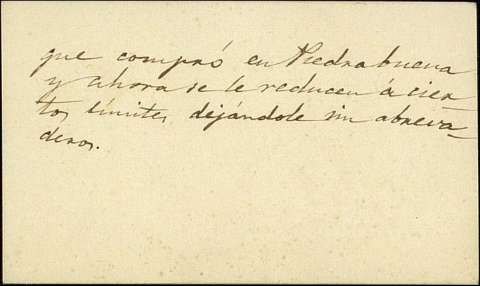 que compró en Piedrabuena
y ahora se le reducen á cier-
tos límites dejándole sin abreva-
deros.